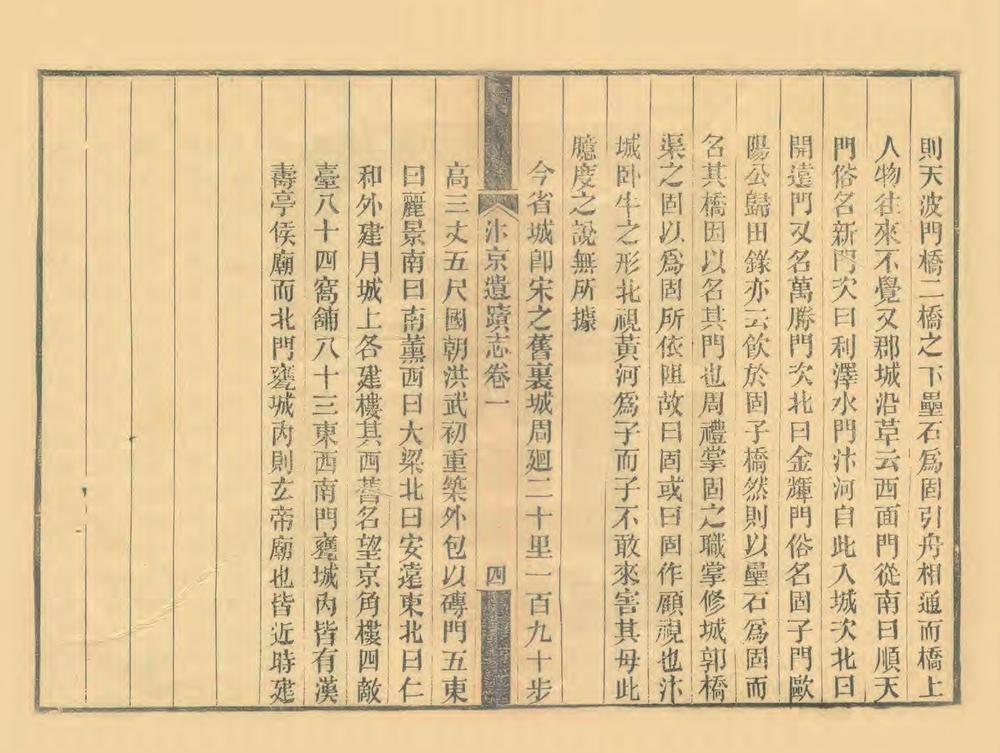 則天波門橋二橋之下壘石爲固引舟相通而橋上
人物往來不覺又郡城沿草云西面門從南曰順天
門俗名新門次曰利澤水門汴河自此入城次北曰
開遠門又名萬勝門次北曰金輝門俗名固子門歐
陽公歸田錄亦云飲於固子橋然則以壘石爲固而
名其橋因以名其門也周禮掌固之職掌修城郭橋
渠之固以爲固所依阻故曰固或曰固作顧視也汴
城卧牛之形北視黃河爲子而子不敢來害其母此
臆度之說無所據
今省城卽宋之舊裏城周廻二十里一百九十步
汴京遺蹟志卷一
四
高三丈五尺國朝洪武初重築外包以磚門五東
曰麗景南曰南薰西曰大梁北曰安遠東北曰仁
和外建月城上各建樓其西舊名望京角樓四敵
臺八十四窩舖八十三東西南門甕城內皆有漢
壽亭侯廟而北門甕城內則玄帝廟也皆近時建